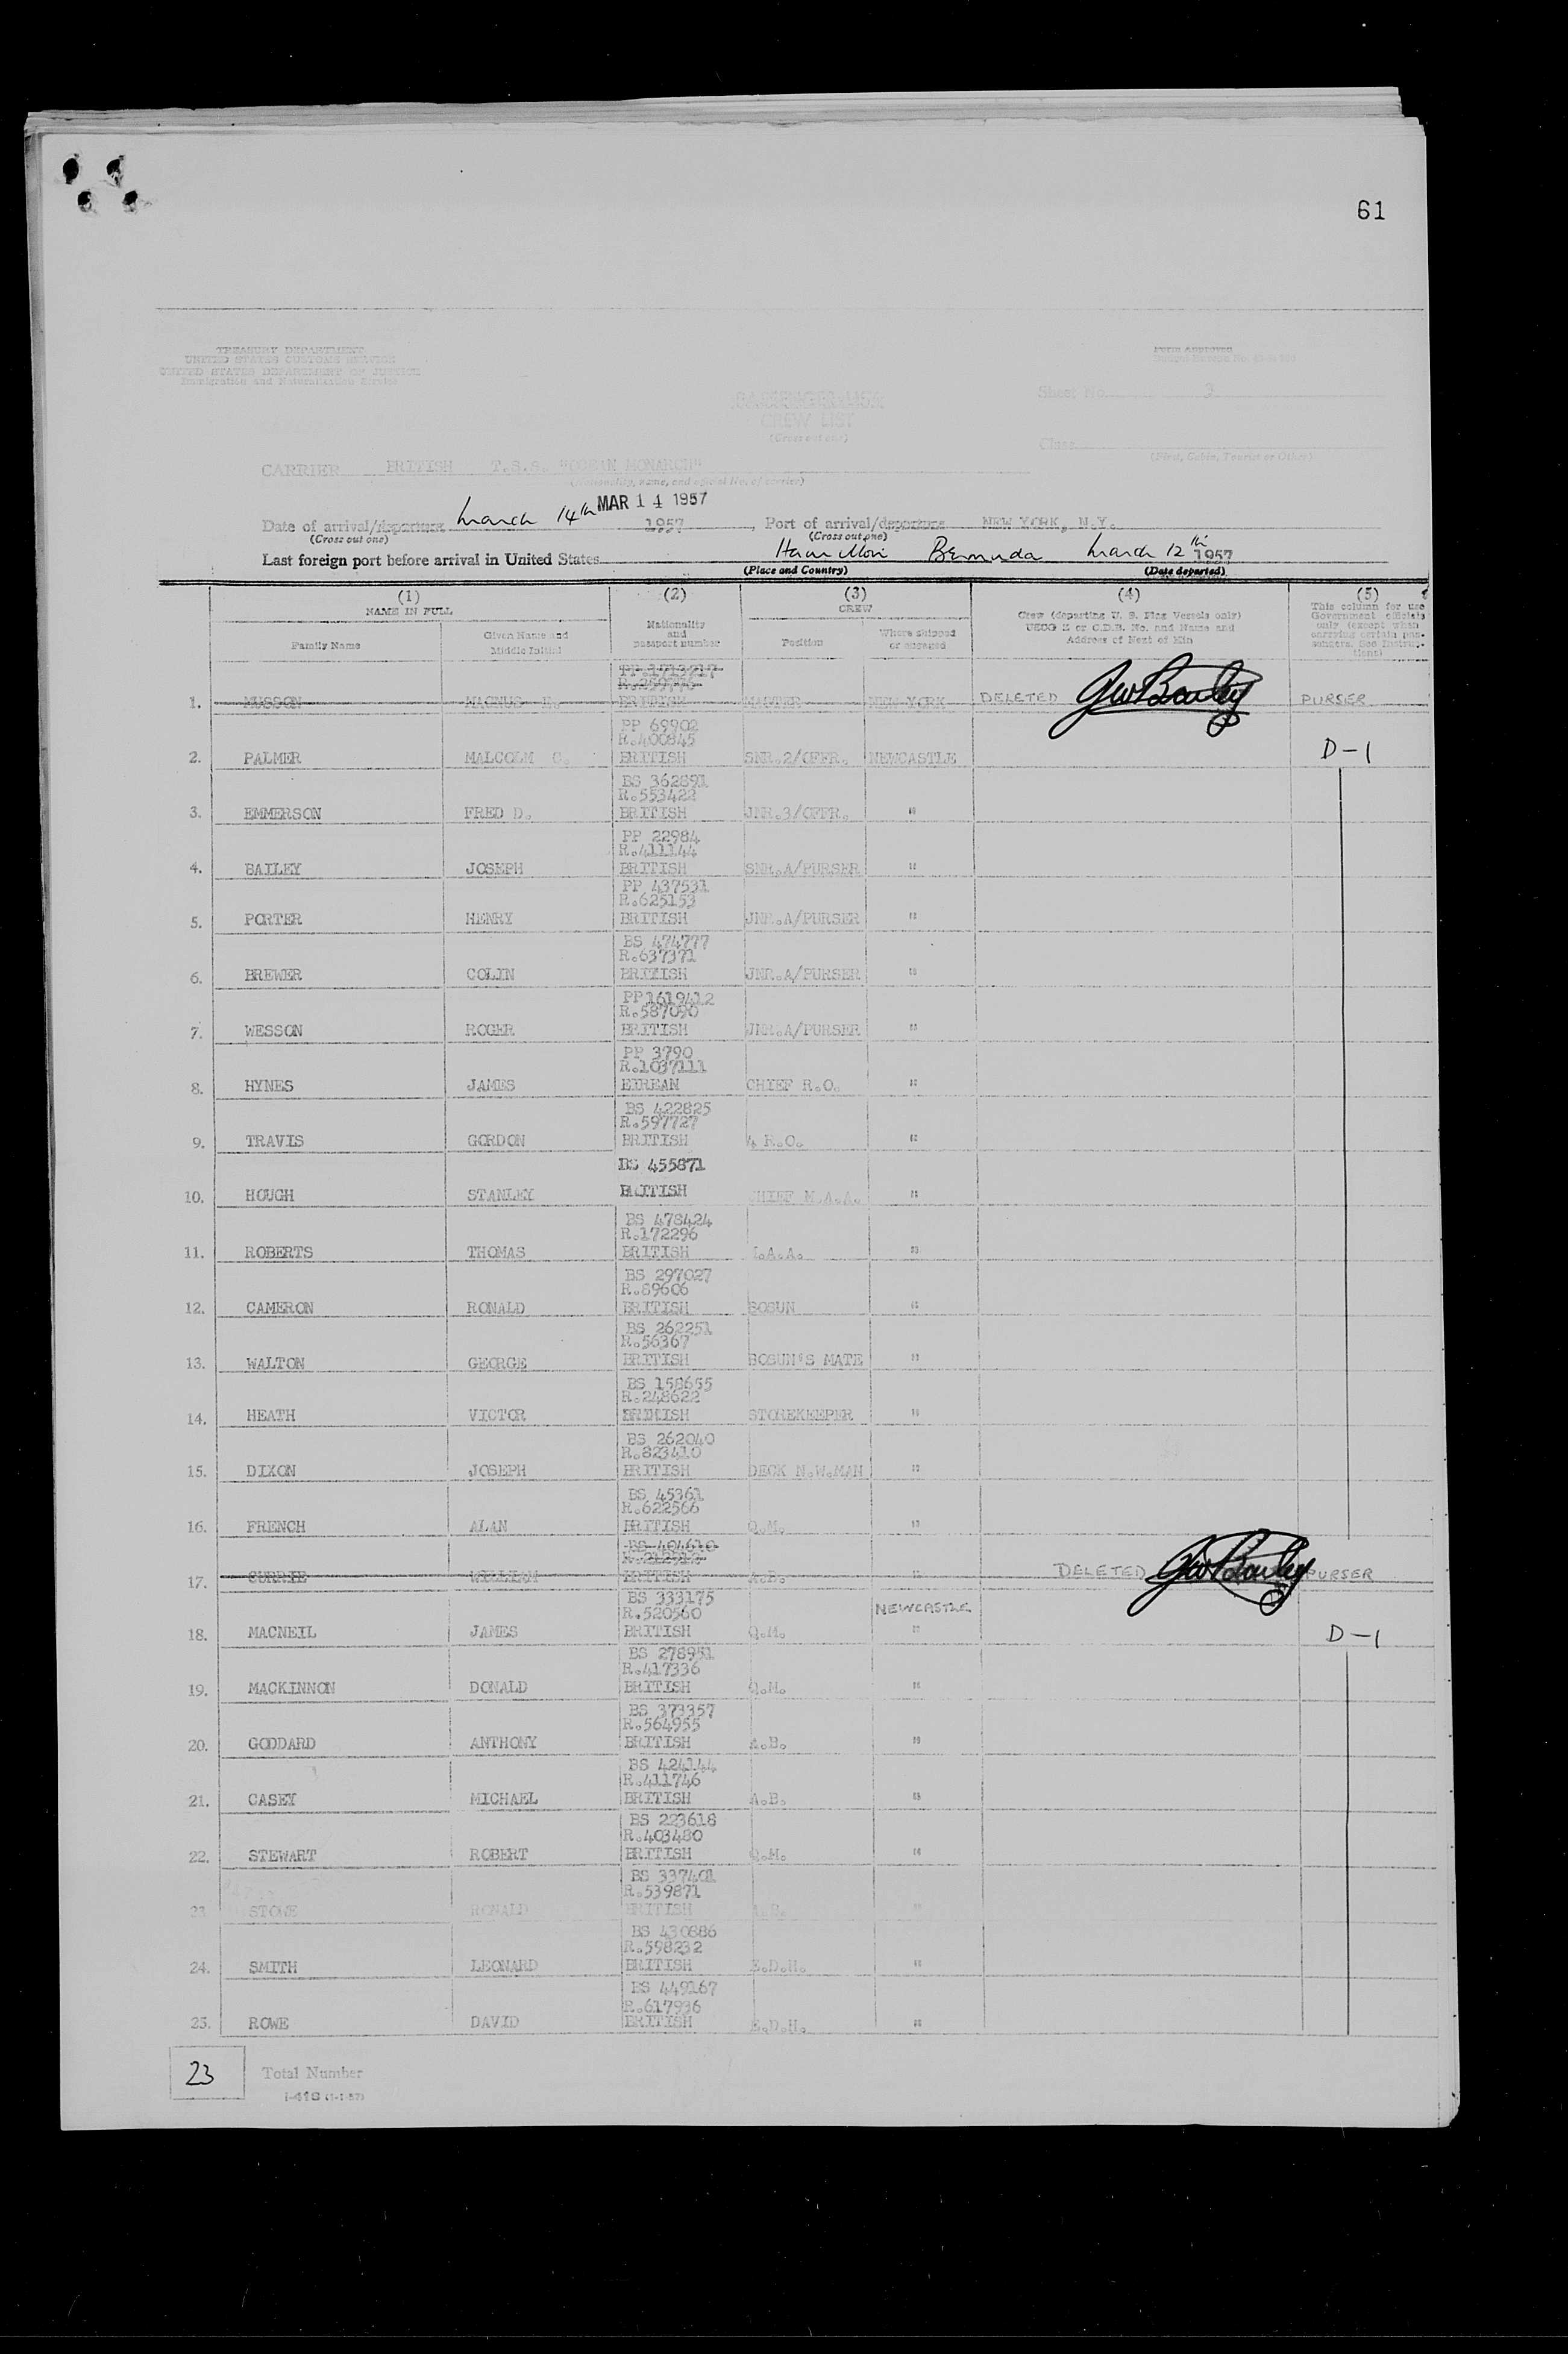 61
TREASURY DEPARTMENT
UNITED STATES CUSTOMS SERVICE
UNITED STATES DEPARTMENT OF JUSTICE
Immigration and Naturalization Service
FORM APPROVED
Sheet No. 3
PASSENGER LIST
CREW LIST
(Cross out one)
Class
(First, Cabin, Tourist or Other)
CARRIER BRITISH T.S.S. "OCEAN MONARCH"
(Nationality, name, and official No. of carrier)
Date of arrival/departure March 14th MAR 14 1957 1957, Port of arrival/departure NEW YORK, N.Y.
(Cross out one) (Cross out one)
Last foreign port before arrival in United States Hamilton Bermuda March 12th 1957
(Place and Country) (Date departed)
(1) (2) (3) (4) (5)
NAME IN FULL
Family Name
Given Name and Middle Initial
Nationality and passport number
CREW
Position
Where shipped or engaged
Crew (departing U. S. Flag Vessels only)
USCG Z or C.D.B. No. and Name and
Address of Next of Kin
This column for use
Government officials
only (except when
carrying certain pas-
sengers. See Instruc-
tions)
PP.1713217
R.259776
1. MUSSON MAGNUS BRITISH MASTER NEW YORK DELETED PURSER
PP 69902
R.400845
2. PALMER MALCOLM C. BRITISH SNR.2/OFFR. NEWCASTLE D-1
BS 362891
R.553422
3. EMMERSON FRED D. BRITISH JNR.3/OFFR. "
PP 22984
R.411144
4. BAILEY JOSEPH BRITISH SNR.A/PURSER "
PP 437531
R.625153
5. PORTER HENRY BRITISH JNR.A/PURSER "
BS 474777
R.637371
6. BREWER COLIN BRITISH JNR.A/PURSER "
PP 1619412
R.587090
7. WESSON ROGER BRITISH JNR.A/PURSER "
PP 3790
R.1037111
8. HYNES JAMES EIREAN CHIEF R.O. "
BS 422825
R.597727
9. TRAVIS GORDON BRITISH 4 R.O. "
BS 455871
10. HOUGH STANLEY BRITISH CHIEF M.A.A. "
BS 478424
R.172296
11. ROBERTS THOMAS BRITISH M.A.A. "
BS 297027
R.89606
12. CAMERON RONALD BRITISH BOSUN "
BS 262251
R.56367
13. WALTON GEORGE BRITISH BOSUN'S MATE "
BS 158655
R.248622
14. HEATH VICTOR BRIMISH STOREKEEPER "
BS 262040
R.823410
15. DIXON JOSEPH BRITISH DECK N.W.MAN "
BS 45361
R.622566
16. FRENCH ALAN BRITISH Q.M. "
BS 404610
R.212912
17. CURRIE WILLIAM BRITISH A.B. " DELETED PURSER
BS 333175
R.520560 NEWCASTLE
18. MACNEIL JAMES BRITISH Q.M. " D-1
BS 278951
R.417336
19. MACKINNON DONALD BRITISH Q.M. "
BS 373357
R.564955
20. GODDARD ANTHONY BRITISH A.B. "
BS 424144
R.411746
21. CASEY MICHAEL BRITISH A.B. "
BS 223618
R.403480
22. STEWART ROBERT BRITISH Q.M. "
BS 337401
R.539871
23. STOWE RONALD BRITISH A.B. "
BS 430886
R.598232
24. SMITH LEONARD BRITISH E.D.H. "
BS 449167
R.617936
25. ROWE DAVID BRITISH E.D.H. "
23 Total Number
I-418 (1-1-57)